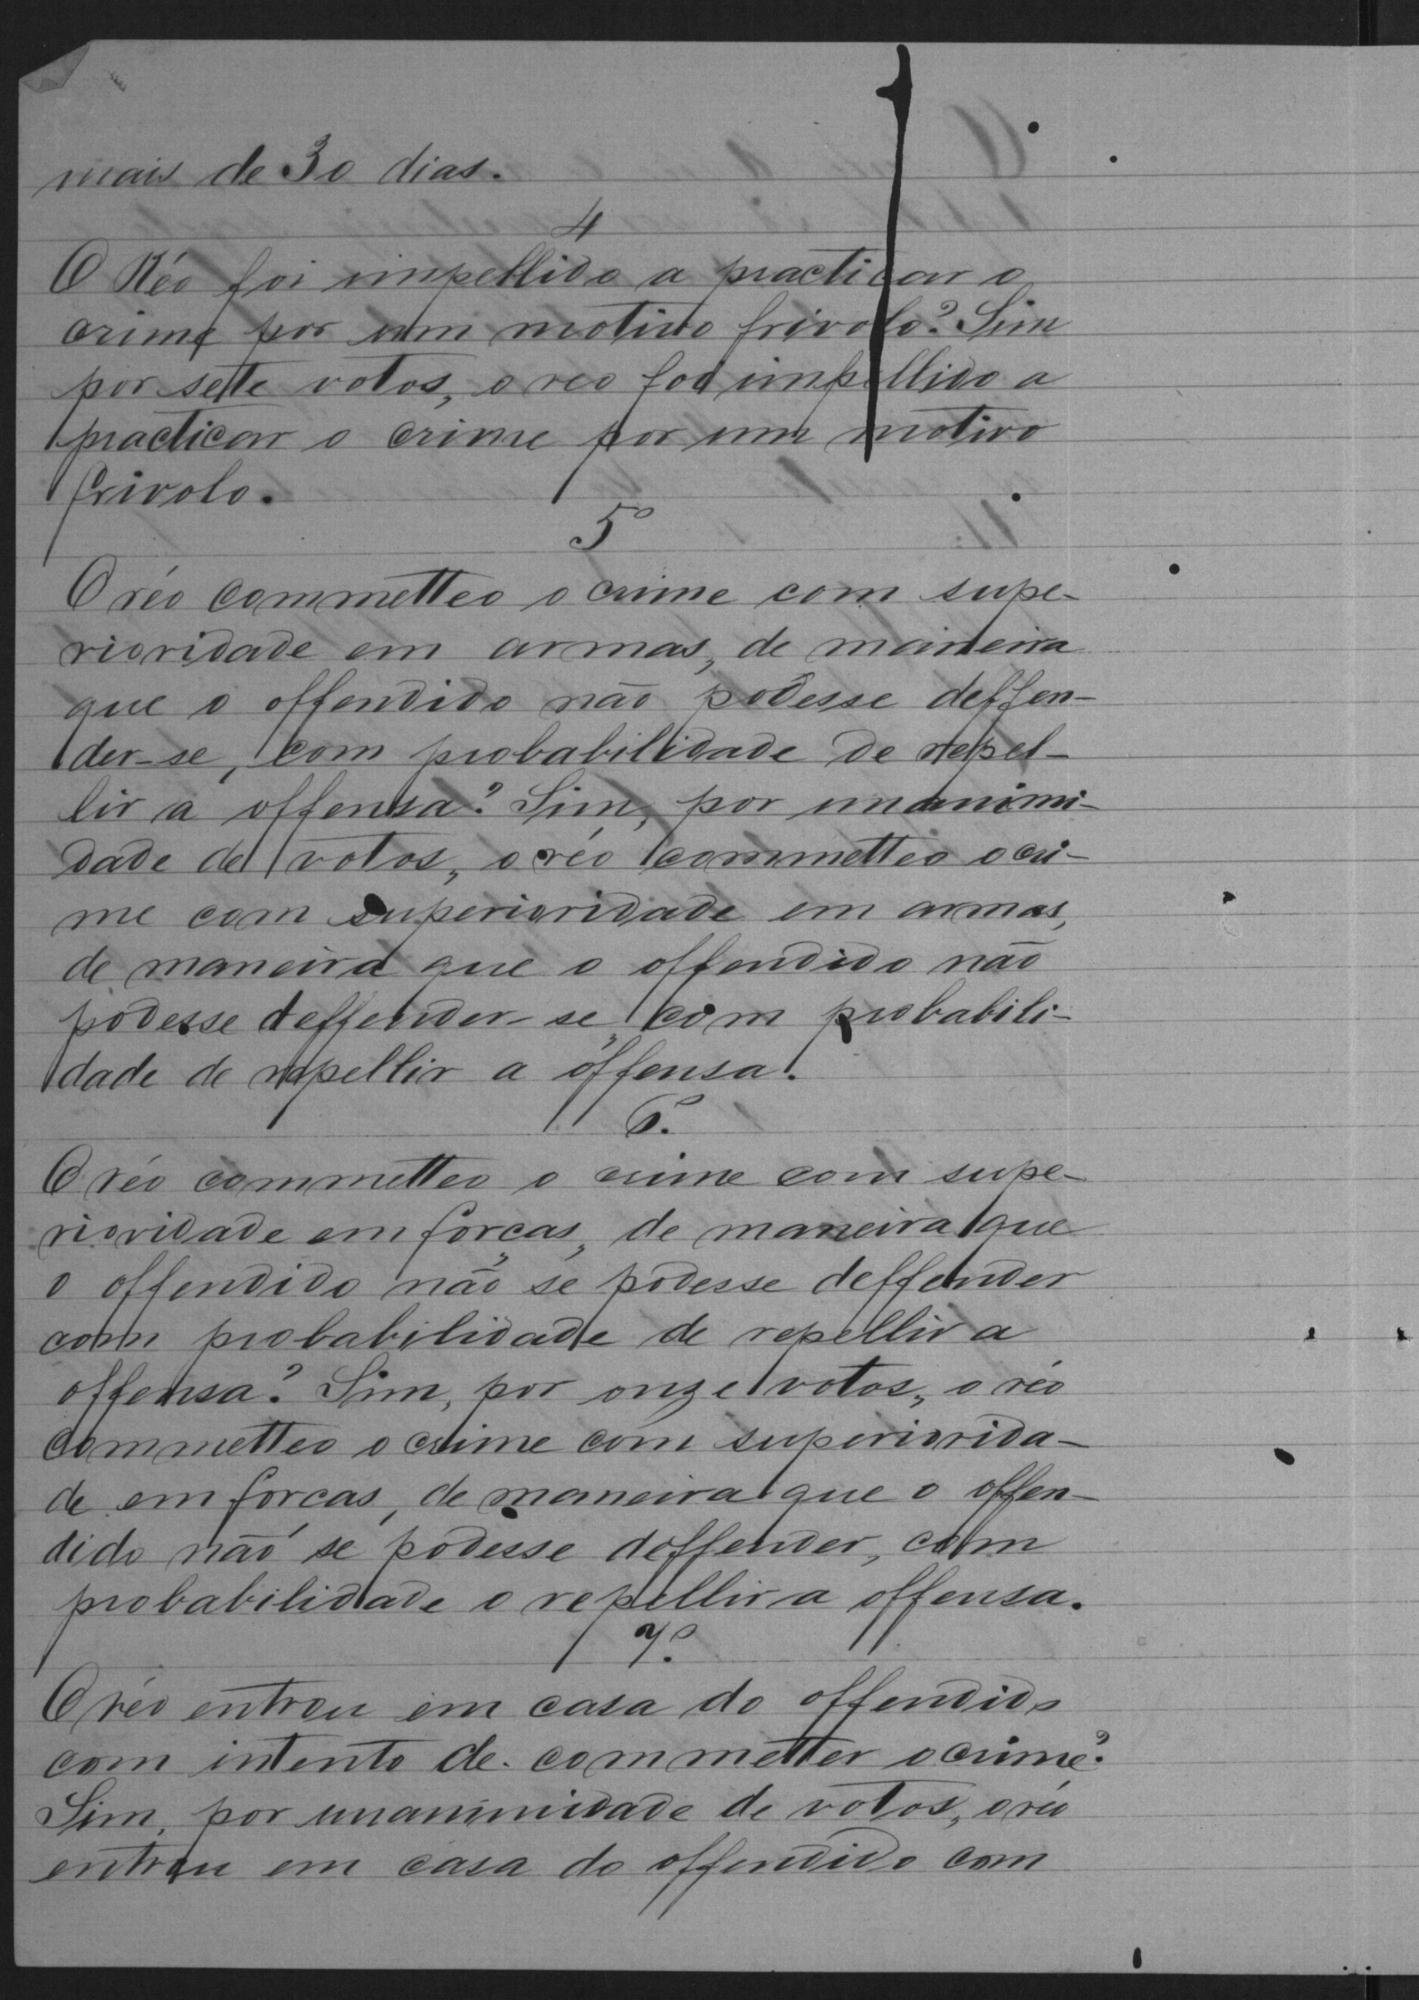 mais de 30 dias.
4
O Réo foi impellido a practicar o
crime por um motivo frivolo? Sim
por sete votos, o reo foi impellido a
practicar o crime por um motivo
frivolo.
5º
O réo commetteo o crime com supe-
rioridade em armas, de maineira
que o offendido não podesse deffen-
der-se, com probabilidade de repel-
lir a offensa? Sim, por unanimi-
dade de votos, o réo commetteo o cri-
me com superioridade em armas,
de maneira que o offendido não
podesse deffender-se com probabili-
dade de repellir a offensa.
6º.
O réo commetteo o crime com supe-
rioridade em forças, de maneira que
o offendido não se podesse deffender
com probabilidade de repellir a
offensa? Sim, por onze votos, o réo
commetteo o crime com superiorida-
de em forcas, de maneira que o offen-
dido não se podesse deffender, com
probabilidade o repellir a offensa.
7º.
O réo entrou em casa do offendido
com intento de commetter o crime?
Sim, por unanimidade de votos, o réo
entrou em casa do offendido com